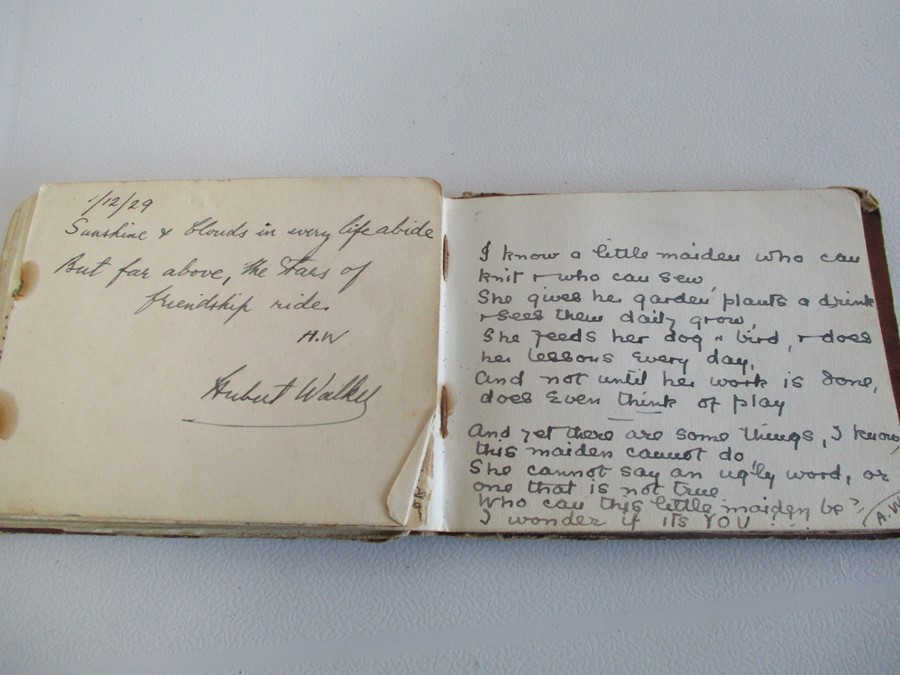 1/12/29
Sunshine & Clouds in every life abide
But far above, the Stars of
friendship ride.
H.W
Hubert Walker
I know a little maiden who can
knit & who can sew,
She gives her garden plants a drink
& sees them daily grow,
She feeds her dog & bird, & does
her lessons every day,
And not until her work is done,
does even think of play
And yet there are some things, I know,
this maiden cannot do
She cannot say an ugly word, or
one that is not true.
Who can this little maiden be?
I wonder if its YOU !!!
A.W